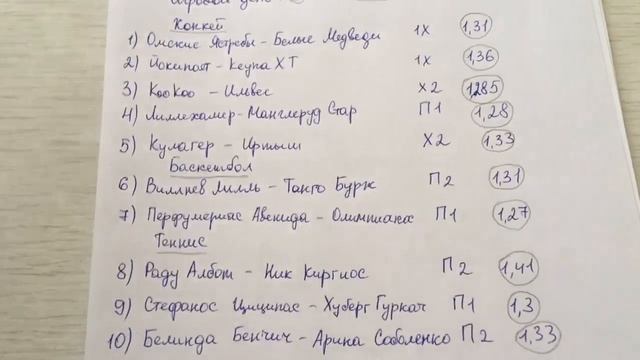 Хоккей
1) Омские Ястребы - Белые Медведи 1X 1,31
2) Йокипоят - Кеупа ХТ 1X 1,36
3) КооКоо - Ильвес X2 1,285
4) Лиллехамер - Манглеруд Стар П1 1,28
5) Кулагер - Иртыш X2 1,33
Баскетбол
6) Виллнев Лилль - Танго Бурж П2 1,31
7) Перфумериас Авенида - Олимпиака П1 1,27
Теннис
8) Раду Албот - Ник Киргиос П2 1,41
9) Стефанос Циципас - Хуберг Гуркач П1 1,3
10) Белинда Бенчич - Арина Соболенко П2 1,33